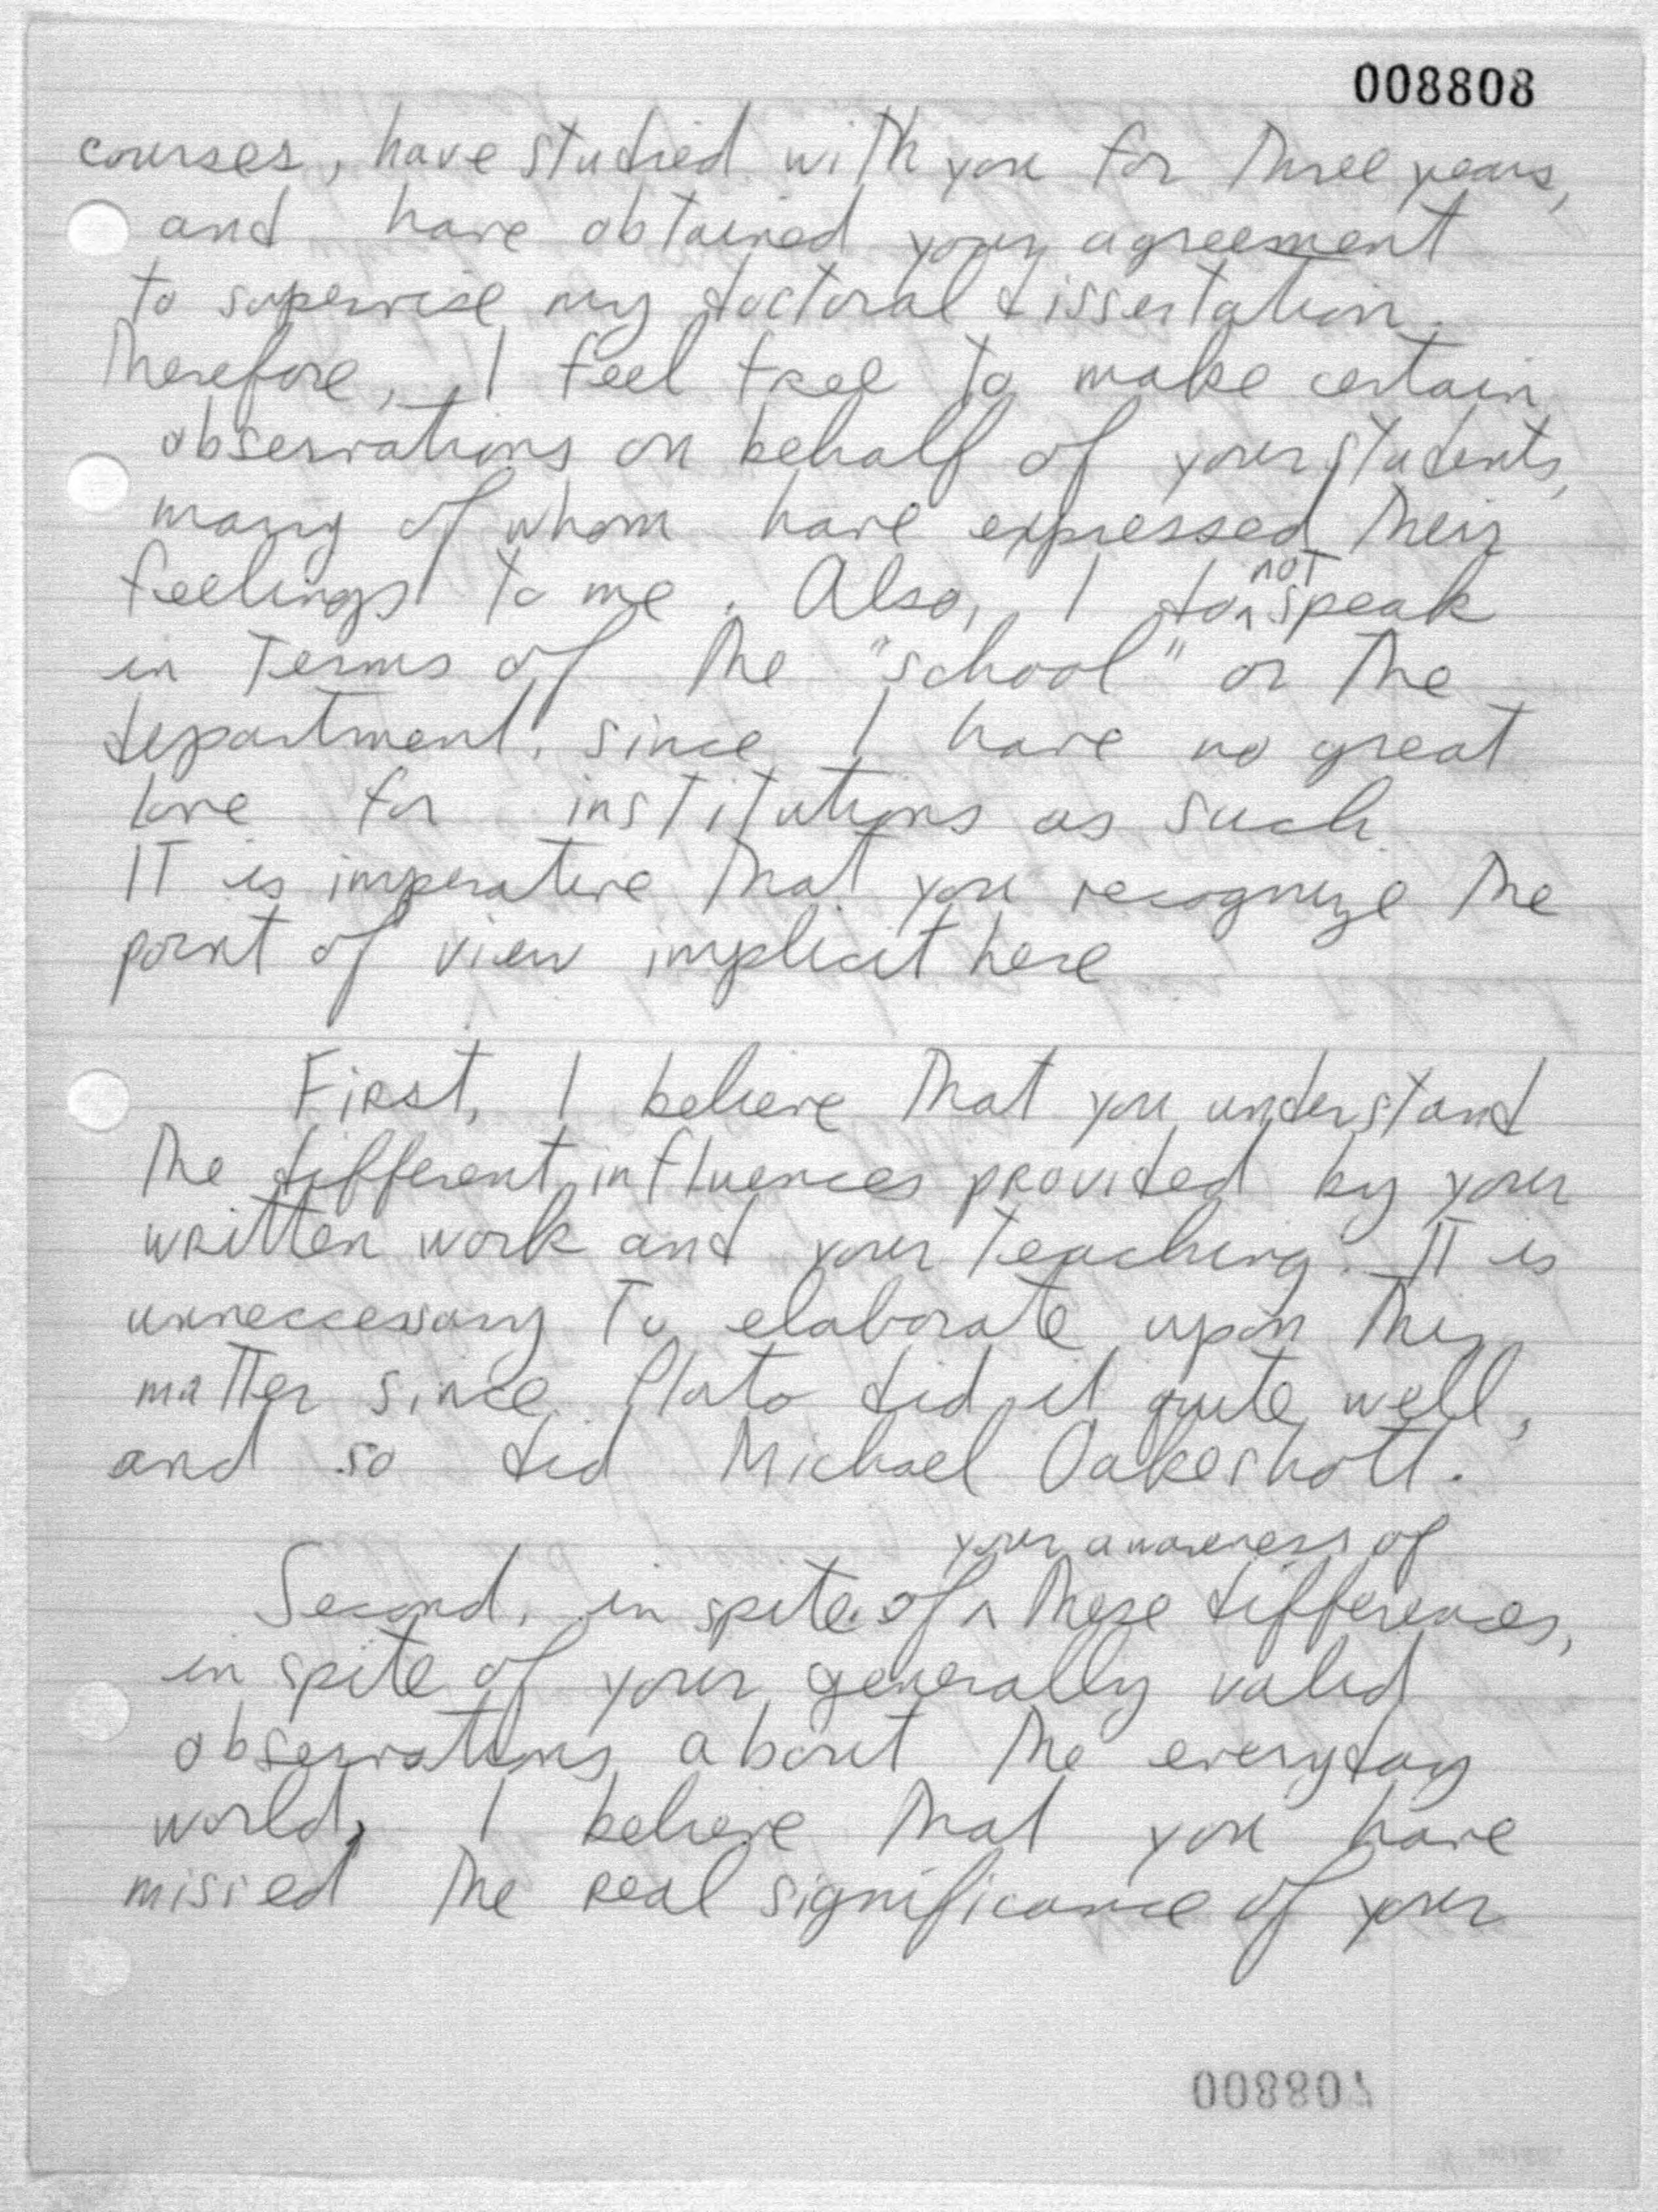 008808
courses, have studied with you for three years,
and have obtained your agreement
to supervise my doctoral dissertation.
Therefore, I feel free to make certain
observations on behalf of your students,
many of whom have expressed their
feelings to me. Also, I do not speak
in terms of the "school" or the
department, since I have no great
love for institutions as such.
IT is imperative that you recognize the
point of view implicit here
First, I believe that you understand
the different influences provided by your
written work and your teaching. IT is
unneccessary to elaborate upon this
matter since Plato did it quite well,
and so did Michael Oakeshott.
Second, in spite of your awareness of these differences,
in spite of your generally valid
observations about the everyday
world, I believe that you have
missed the real significance of your
008807